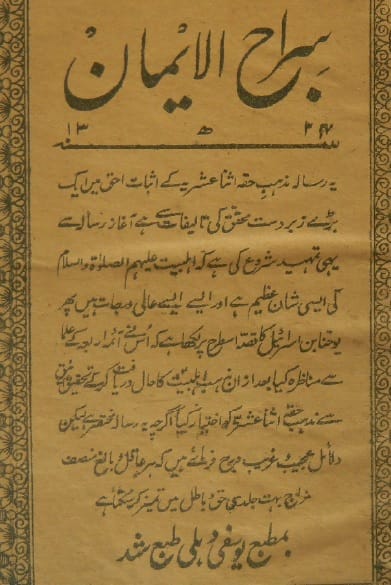 سراج الایمان
سنہ ۱۳۲۴ ھ
یہ رسالہ مذہب حقہ اثنا عشریہ کے اثبات احق میں ایک
بڑے زبردست محقق کی تالیفات سے ہے آغاز رسالہ سے
یہی تمہید شروع کی ہے کہ اہلبیت علیہم الصلوٰۃ والسلام
کی ایسی شان عظیم ہے اور ایسے ایسے عالی درجات ہیں پھر
یوحنا بن اسرائیل کا قصہ اسطرح پر لکھا ہے کہ اُس نے ائمہ اربعہ کے علما
سے مناظرہ کیا بعد ازاں مذہب اہلبیت کا حال دریافت کر کے تحقیق حق
سے مذہب حقہ اثنا عشریہ کو اختیار کیا اگرچہ یہ رسالہ مختصر ہے لیکن
دلائل عجیب و غریب درج فرمائے ہیں کہ ہر عاقل بالغ منصف
مزاج بہت جلد ہی حق و باطل میں تمیز کر سکتا ہے
بمطبع یوسفی دہلی طبع شد